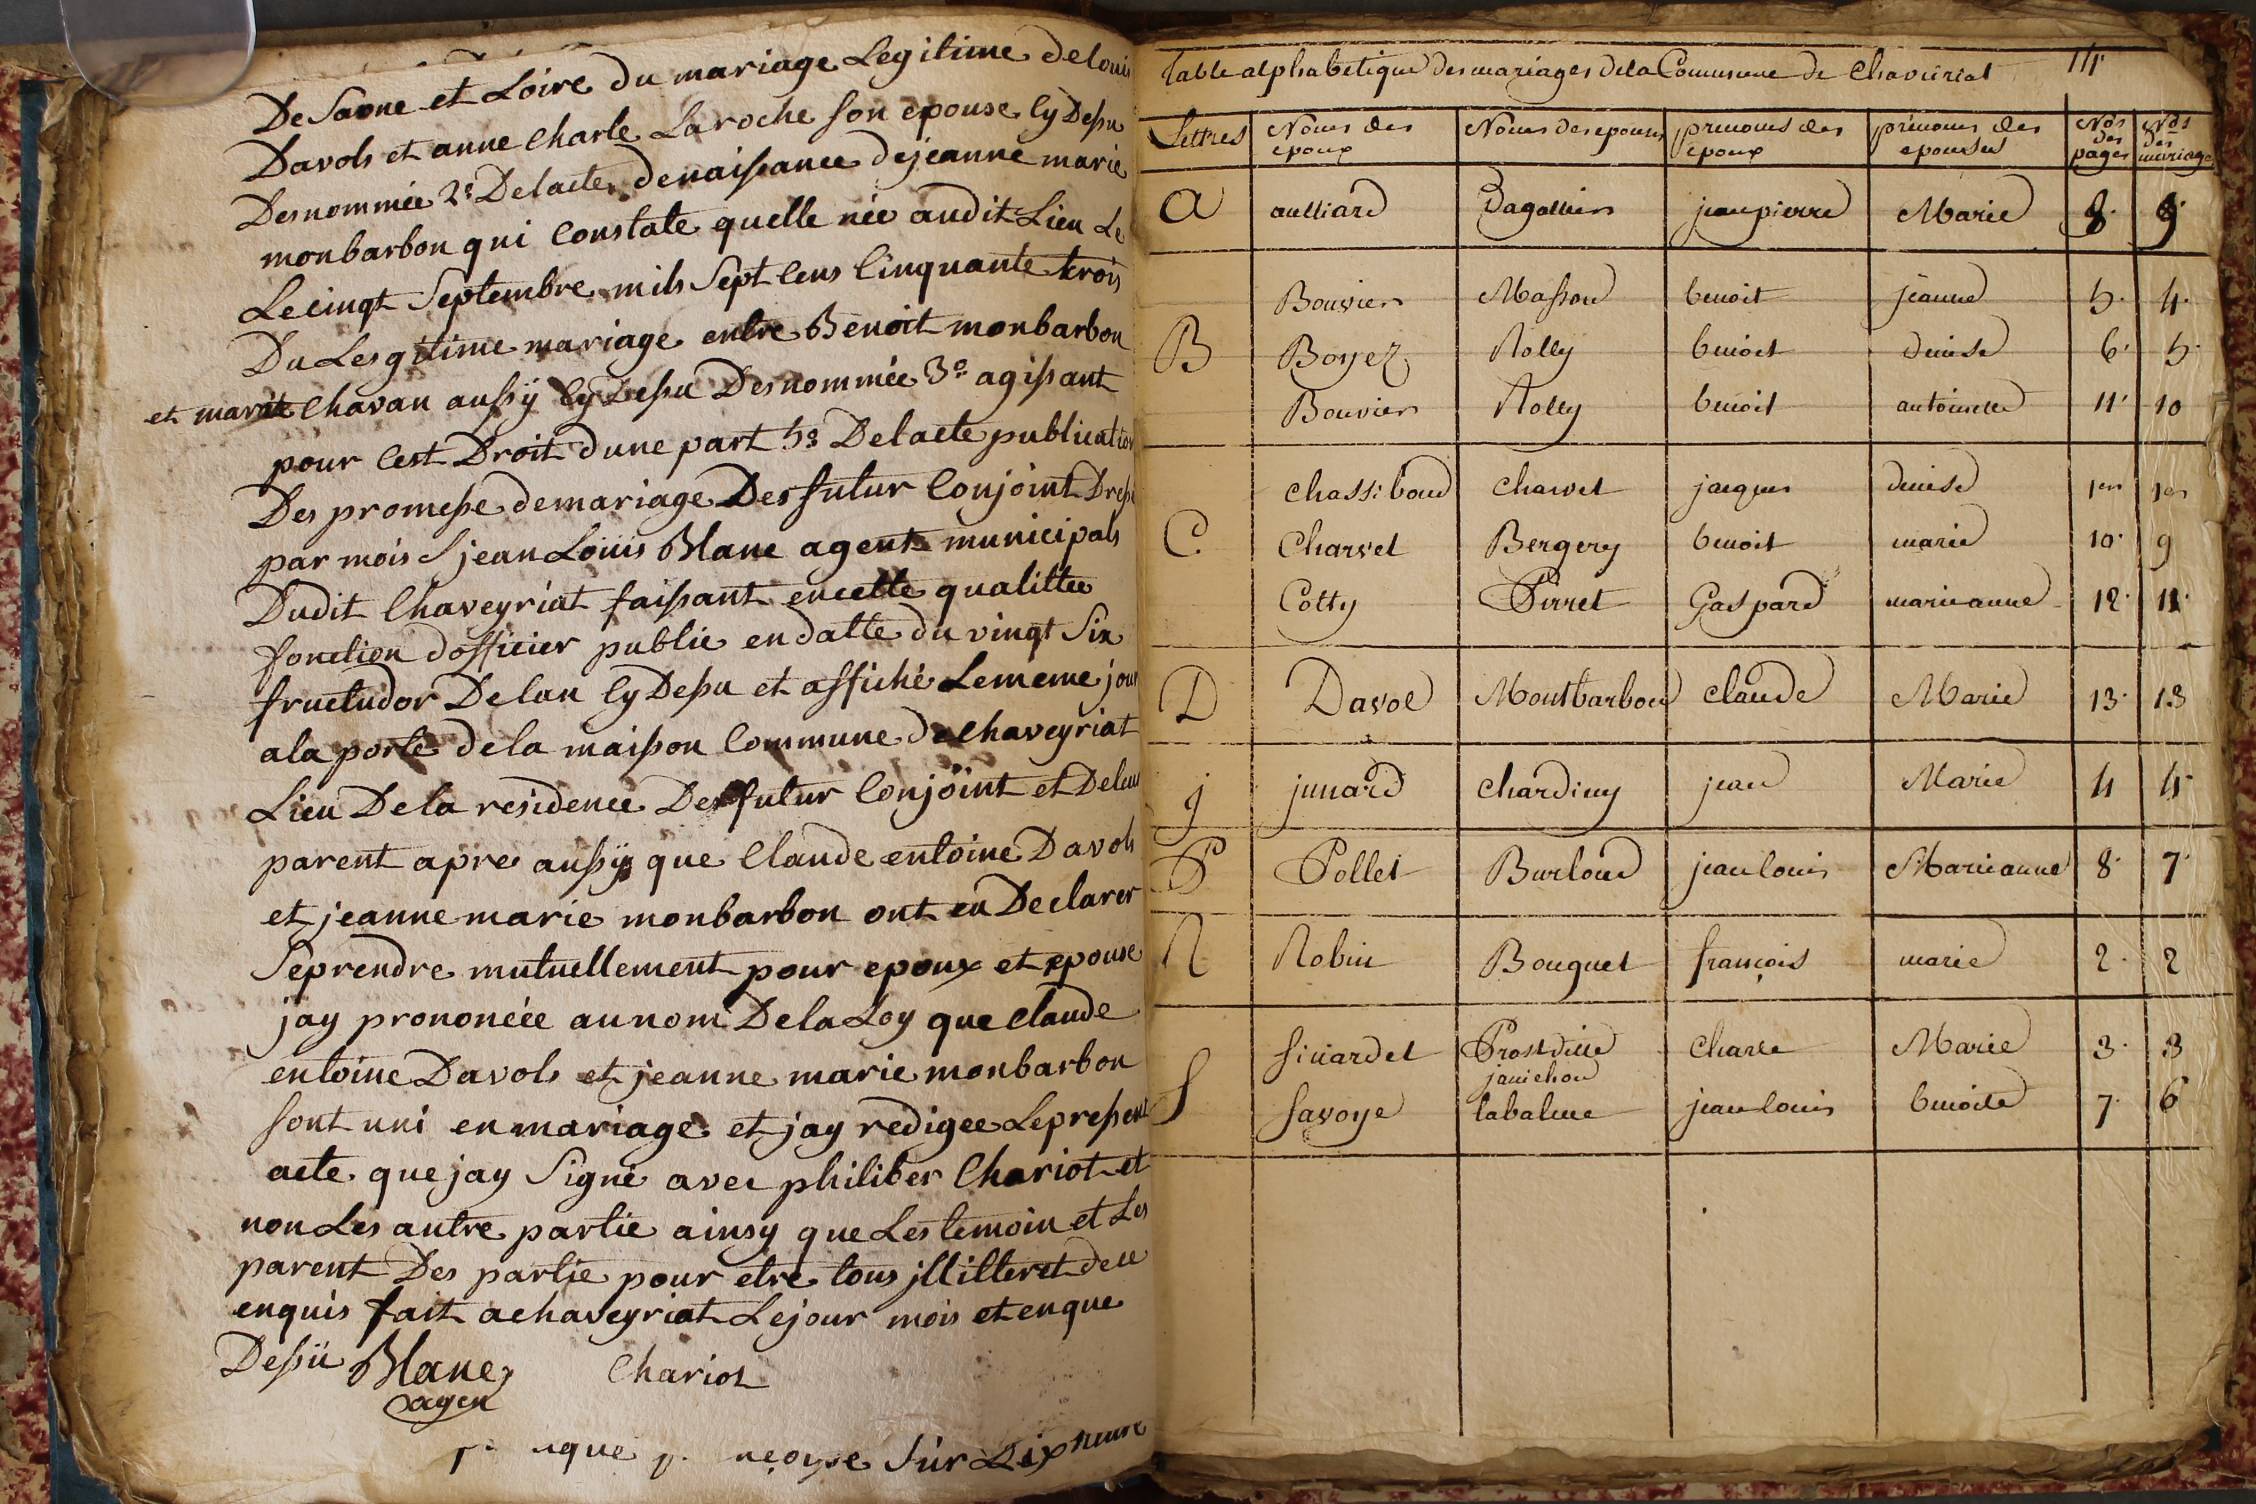 De Saone et Loire du mariage Legitime de loui
Davols et anne charle Laroche son epouse Cy Depu
Desnommée 2º De lacte de naissance de jeanne marie
monbarbon qui Constate quelle née audit Lieu Le
Le cinqt Septembre mils Sept Cens Cinquante trois
Du Lesgitime mariage entre Benoit monbarbon
et marie Chavan aussÿ Cy Depu Desnommée 3º agissant
pour Cest Droit dune part 5º De lacte publication
Des promesse de mariage Des futur Conjoint Dressé
par mois S jean Louis Blanc agent municipals
Dudit Chaveyriat faissant en cette qualittee
fonction dofficier public en datte du vingt Six
fructudor De lan Cy Depu et affiché Le meme jour
a la porte de la maisson Commune de chaveyriat
Lieu De la residence Des futur Conjoint et De leur
parent apre aussÿ que Claude entoine Davols
et jeanne marie monbarbon ont eu Declarer
Se prendre mutuellement pour epoux et epouse
jay prononcée au nom De la Loy que Claude
entoine Davols et jeanne marie monbarbon
sont uni en mariage et jay redigee Le present
acte que jay Signé avec philiber Chariot et
non Les autre partie ainsy que Les temoin et Les
parent Des partie pour etre tous jllitteret de ce
enquis fait a chaveyriat Le jour mois et en que
Depü Blanc Chariot
agen
Sur Dix neuve
Table alphabetique des mariages de la Commune de Chaveiriat 14
Lettres Noms des epoux Noms des epouses prenoms des epoux prenoms des epouses Nos des pages Nos des mariages
a aulliard Dagallier jean pierre Marie 8. 9.
Bouvier Masson benoit jeanne 5. 4.
B Boyez Rolly benoit denise 6. 5.
Bouvier Rolly benoit antoinette 11. 10
Chassiboud Charvet jacques denise 1er 1er
C Charvet Bergery benoit marie 10. 9
Cotty Pirret Gaspard marie anne 12. 11.
D Davol Montbarbon claude Marie 13. 13
j junard Chardiny jean Marie 4 4.
P Pollet Burloud jean louis Marie anne 8. 7.
R Robin Bouquet françois marie 2. 2
Sivardet Prost dille Charle Marie 3. 3
janichon
S Savoye labalme jean louis benoite 7. 6